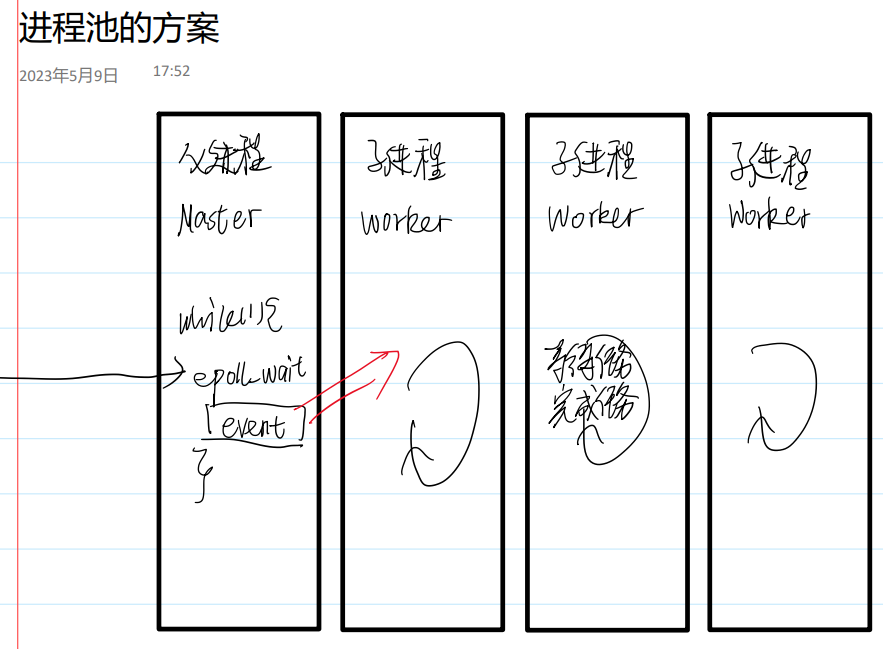 进程池的方案
2023年5月9日 17:52
父进程
Master
while(1){
epoll_wait
event
}
子进程
worker
子进程
Worker
等待任务
完成任务
子进程
Worker